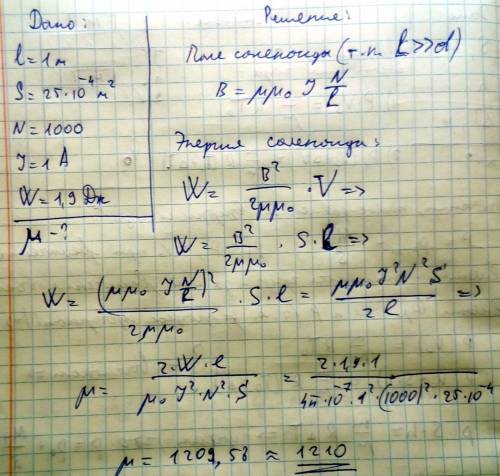 Дано:
l = 1 м
S = 25·10⁻⁴ м²
N = 1000
J = 1 А
W = 1,9 Дж
μ - ?
Решение:
Поле соленоида (т.к. l >> d)
B = μμ₀ J N/l
Энергия соленоида:
W = B²/2μμ₀ · V =>
W = B²/2μμ₀ · S·l =>
W = (μμ₀ J N/l)²/2μμ₀ · S·l = μμ₀ J² N² S/2l =>
μ = 2·W·l/μ₀·J²·N²·S = 2·1,9·1/4π·10⁻⁷·1²·(1000)²·25·10⁻⁴
μ = 1209,58 ≈ 1210